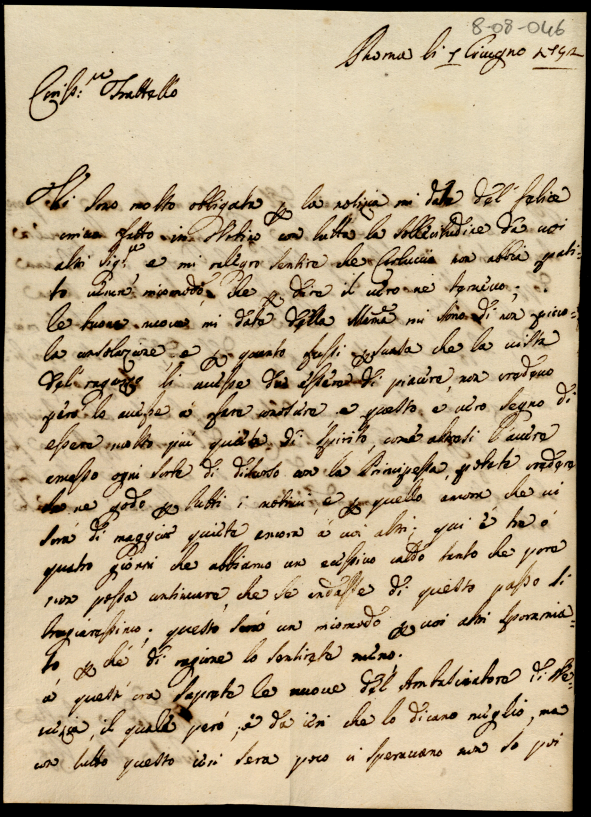 8-08-046
Roma li 5 Giugno
Cariss.mo Fratello
Vi sono molto obligata p la notizia mi date del felice
fatto in con tutta la sollecitudine da voi
altri Sig.ri e mi ralegro sentire che Carluccio non abbia pati-
to che p dire il vero ne temevo;
le buone nuove mi date della Mama mi sono di non picco-
la consolazione e p quanto fussi che la vista
del ragazo li avesse da essere di piacere, non credevo
però lo avesse a fare e questo e vero segno di
essere molto più quieta di spirito, come altresi l'avere
ogni sorte di discorso con la Principessa, potete credere
se ne godo p tutti i motivi, e p quello ancora che vi
sarà di maggior quiete ancora à voi altri; qui è trè ò
quatro giorni che abbiamo un ecessivo caldo tanto che pare
non possa continuare, che se endasse di questo passo si
; questo serà un incomodo p voi altri
to p chè di ragione lo sentirete meno.
à quest'ora saprete le nuove dell'Ambasciatore di Ve-
nezia, il quale però, è da ieri che lo dicano meglio, ma
con tutto questo ieri sera poco ci speravano non so poi